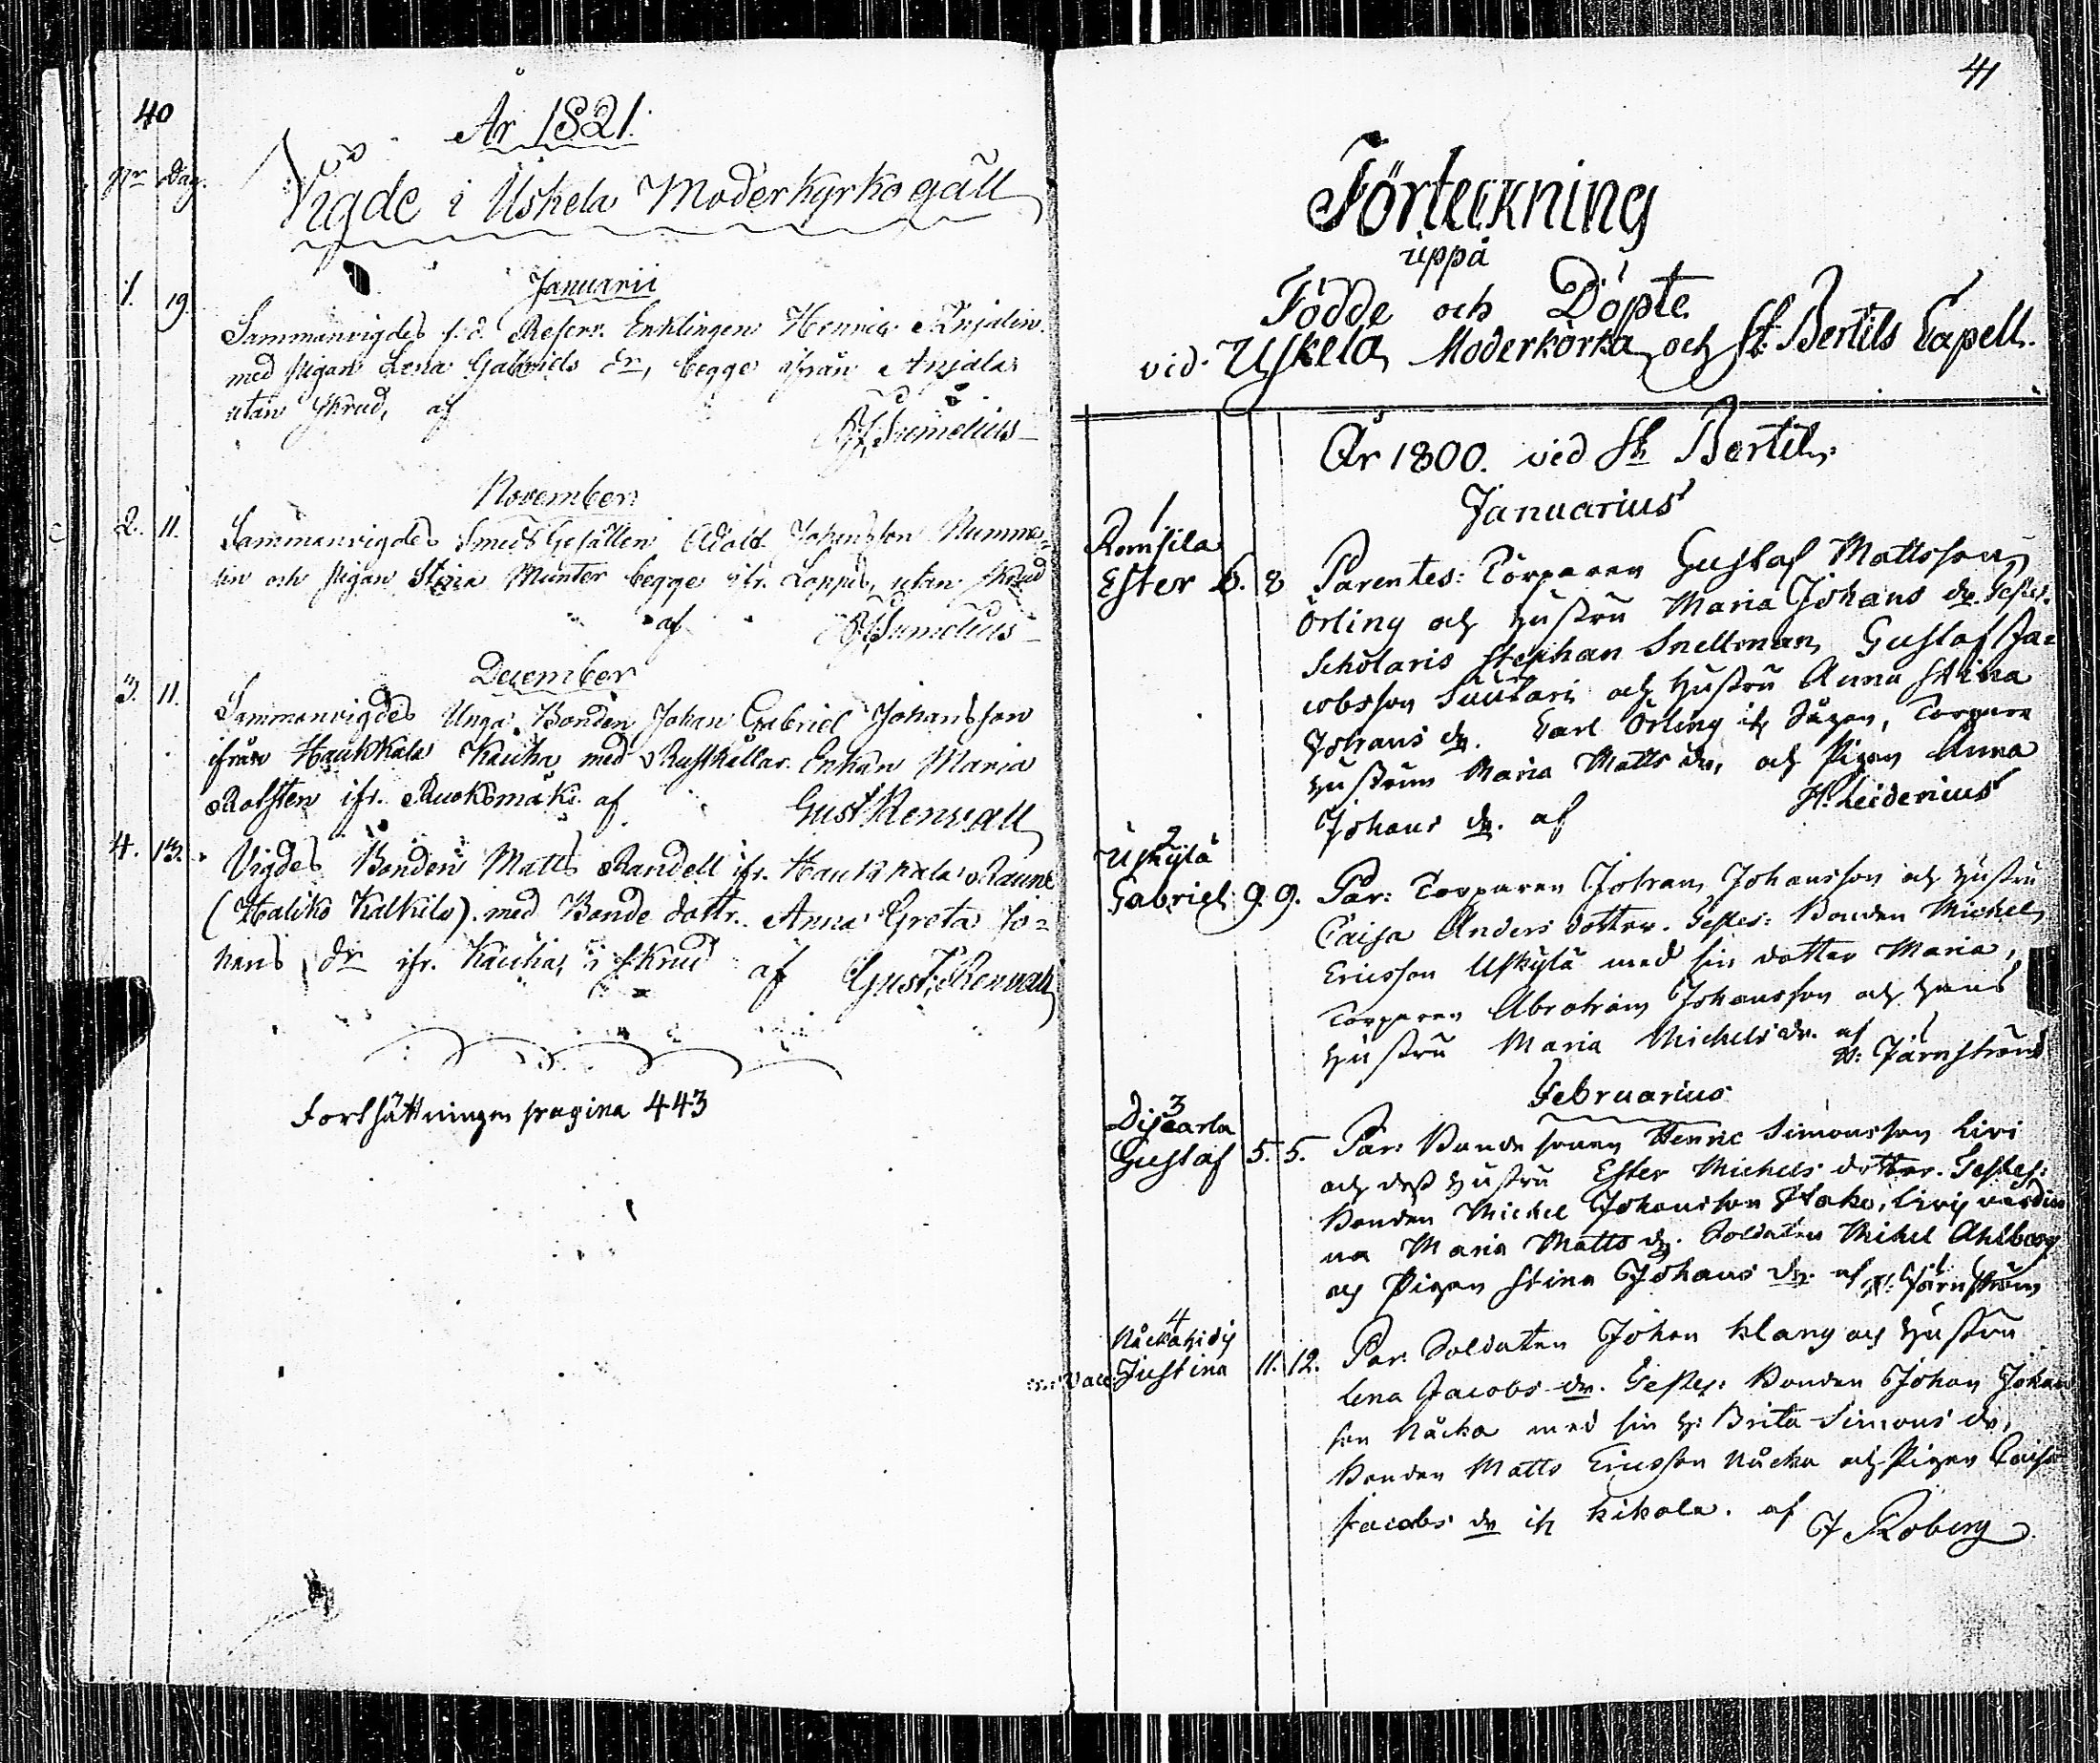 40
År 1821.
Nr Dag.
Vigde i Uskela Moderkyrkogäll
Januarii
1. 19. Sammanvigdes f.d. Reserv. Enklingen Henric Anjalin
med pigan Lena Gabriels dr, begge ifrån Anjala
utan skrud, af
Sumelius
November
2. 11. Sammanvigdes Smeds Gesällen Adolf Johansson Numme-
lin och pigan Stina Munter begge ifr. Loppis, utan skrud
af Sumelius
December
3. 11. Sammanvigdes Unga Bonden Johan Gabriel Johansson
ifrån Haukkala Kauka med Rusthållar Enkan Maria
Rolsten ifr. Ruoksmäki af Gust Renvall
4. 13. Vigdes Bonden Matts Randell ifr. Haukkala Rauni
(Haliko Kalkila) med Bonde dottr. Anna Greta Jo-
hans dr ifr. Kaukas i skrud af Gust. Renvall
Fortsättningen pagina 443
41
Förteckning
uppå
Födde och Döpte
vid Uskela Moderkörka och St Bertils Capell.
År 1800. vid St Bertils
Januarius
1
Romsila
Ester 6. 8 Parentes: Torparen Gustaf Mattsson
Örling och hustru Maria Johans dr. Testes.
Scholaris Stephan Snellman, Gustaf Ja-
cobsson Suutari och hustru Anna Stina
Johans dr. Carl Örling ifr , Torpare
hustrun Maria Matts dr, och Pigan Anna
Johans dr. af H. Leiderius
2
Uskylä
Gabriel 9. 9. Par: Torparen Johan Johansson och hustru
Caisa Anders dotter. Testes: Bonden Michel
Ericsson Uskylä med sin dotter Maria,
Torparen Abraham Johansson och hans
hustru Maria Michels dr. af
Järnström
Februarius
3
Gustaf 5. 5. Par: Bonde sonen Henric Simonsson Livi
och dess hustru Ester Michels dotter. Testes:
Bonden Michel Johansson , Livi värdin-
na Maria Matts dr. Soldaten Mihel Ahlberg
och Pigan Stina Johans dr. af Järnström
4
Justina 11. 12. Par. Soldaten Johan Klang och hustru
Lena Jacobs dr. Testes: Bonden Johan Johans
son Nåcka med sin h: Brita Simons dr,
Bonden Matts Ericsson Nåcka och Pigan Caisa
Jacobs dr ifr Kikola. af J Roberg